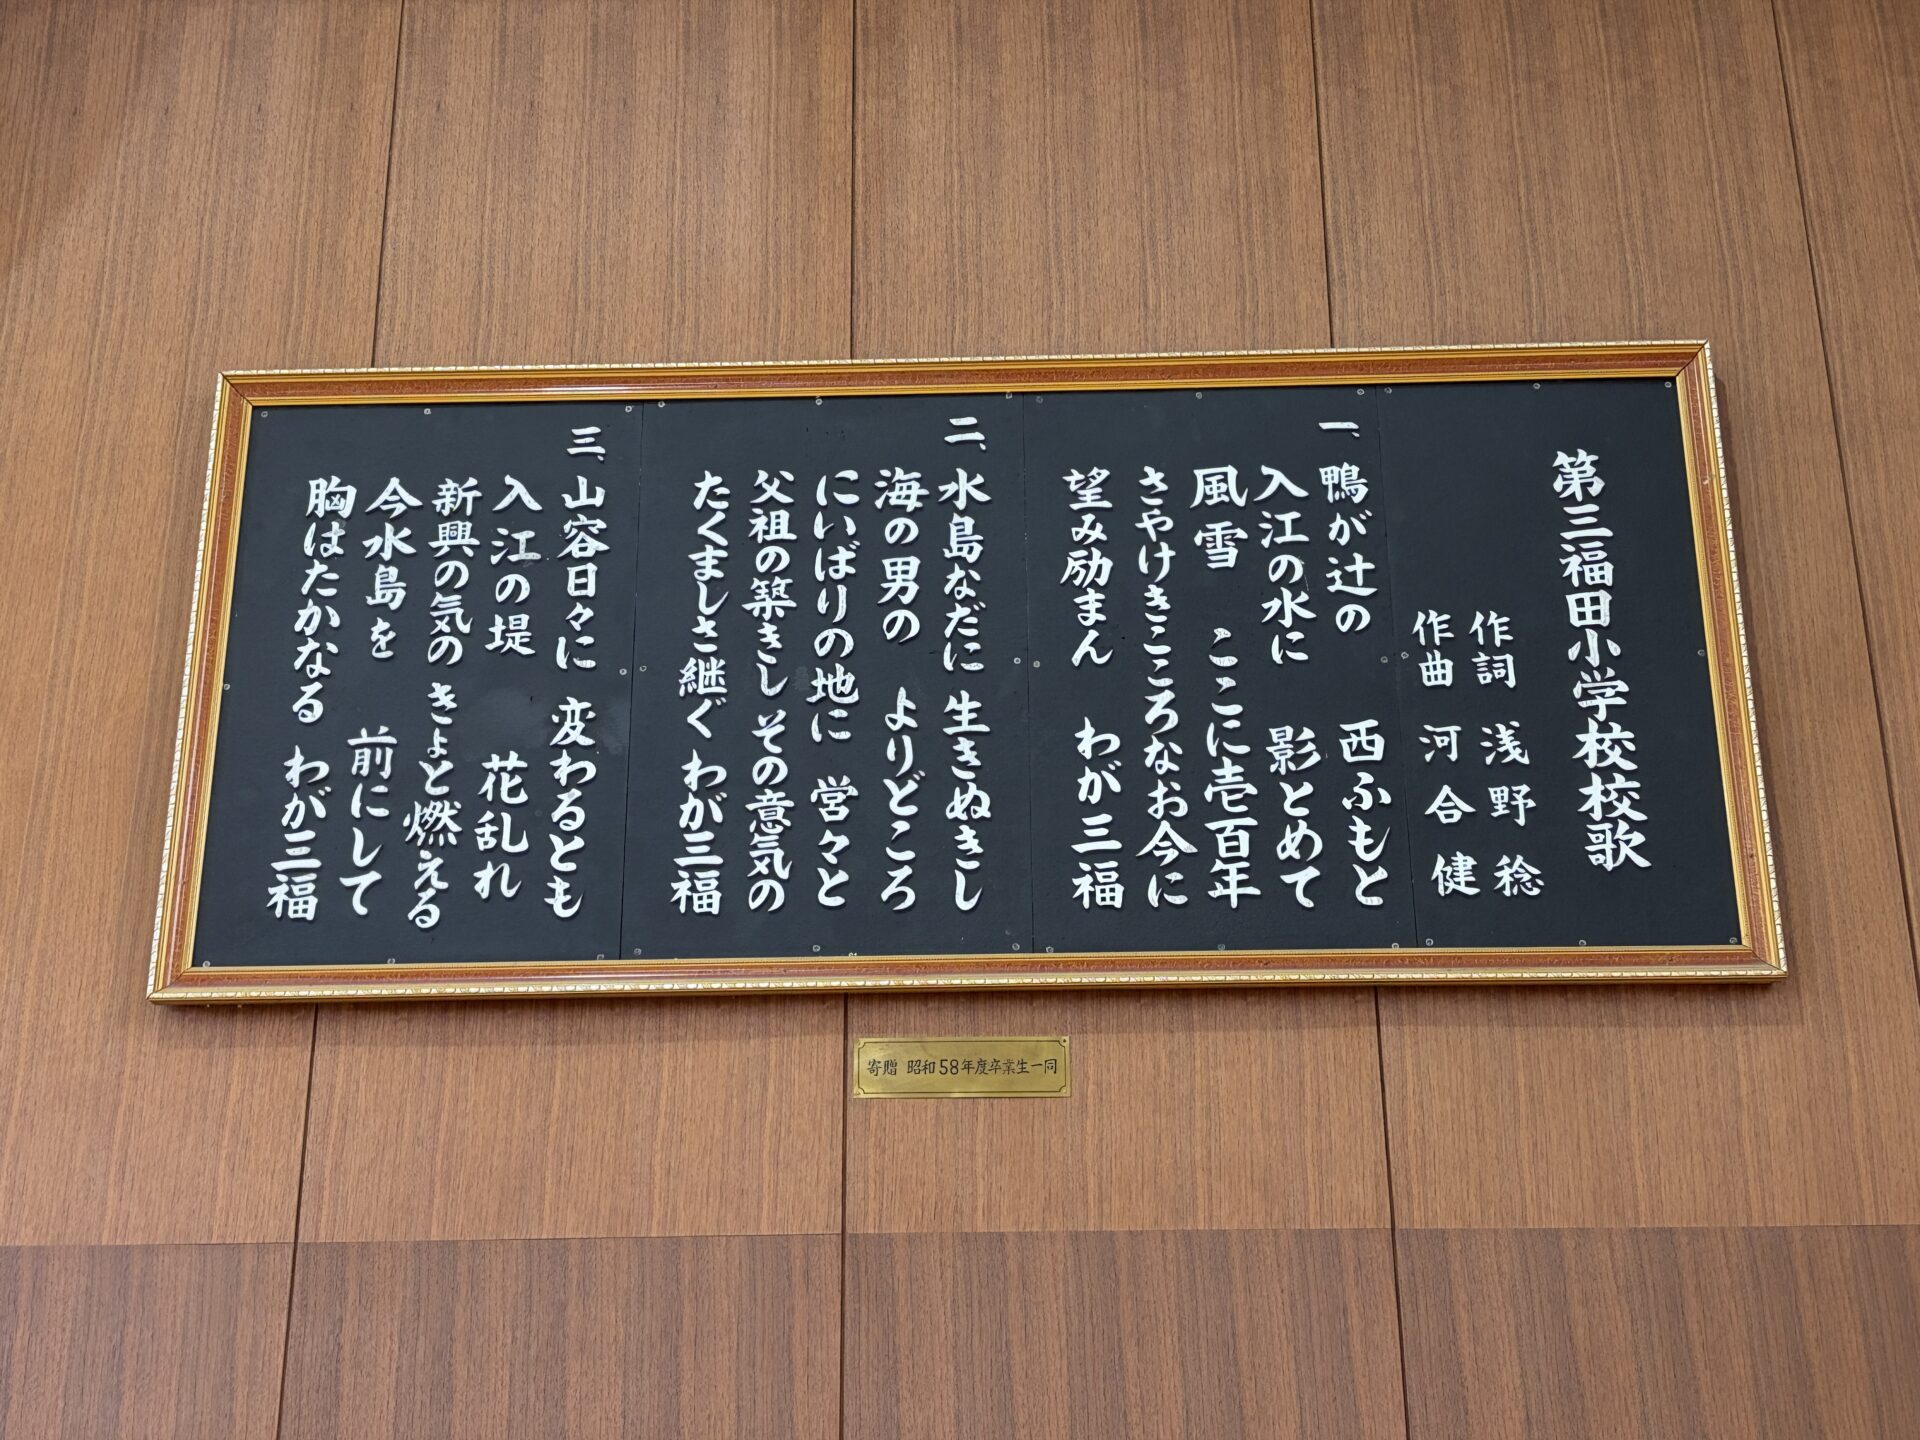 第三福田小学校校歌
作詞 浅野 稔
作曲 河合 健
一、鴨が辻の 西ふもと
入江の水に 影とめて
風雪 ここに壱百年
さやけきこころなお今に
望み励まん わが三福
二、水島なだに 生きぬきし
海の男の よりどころ
にいばりの地に 営々と
父祖の築きし その意気の
たくましさ継ぐ わが三福
三、山容日々に 変わるとも
入江の堤 花乱れ
新興の気の きよと燃える
今水島を 前にして
胸はたかなる わが三福
寄贈 昭和58年度卒業生一同